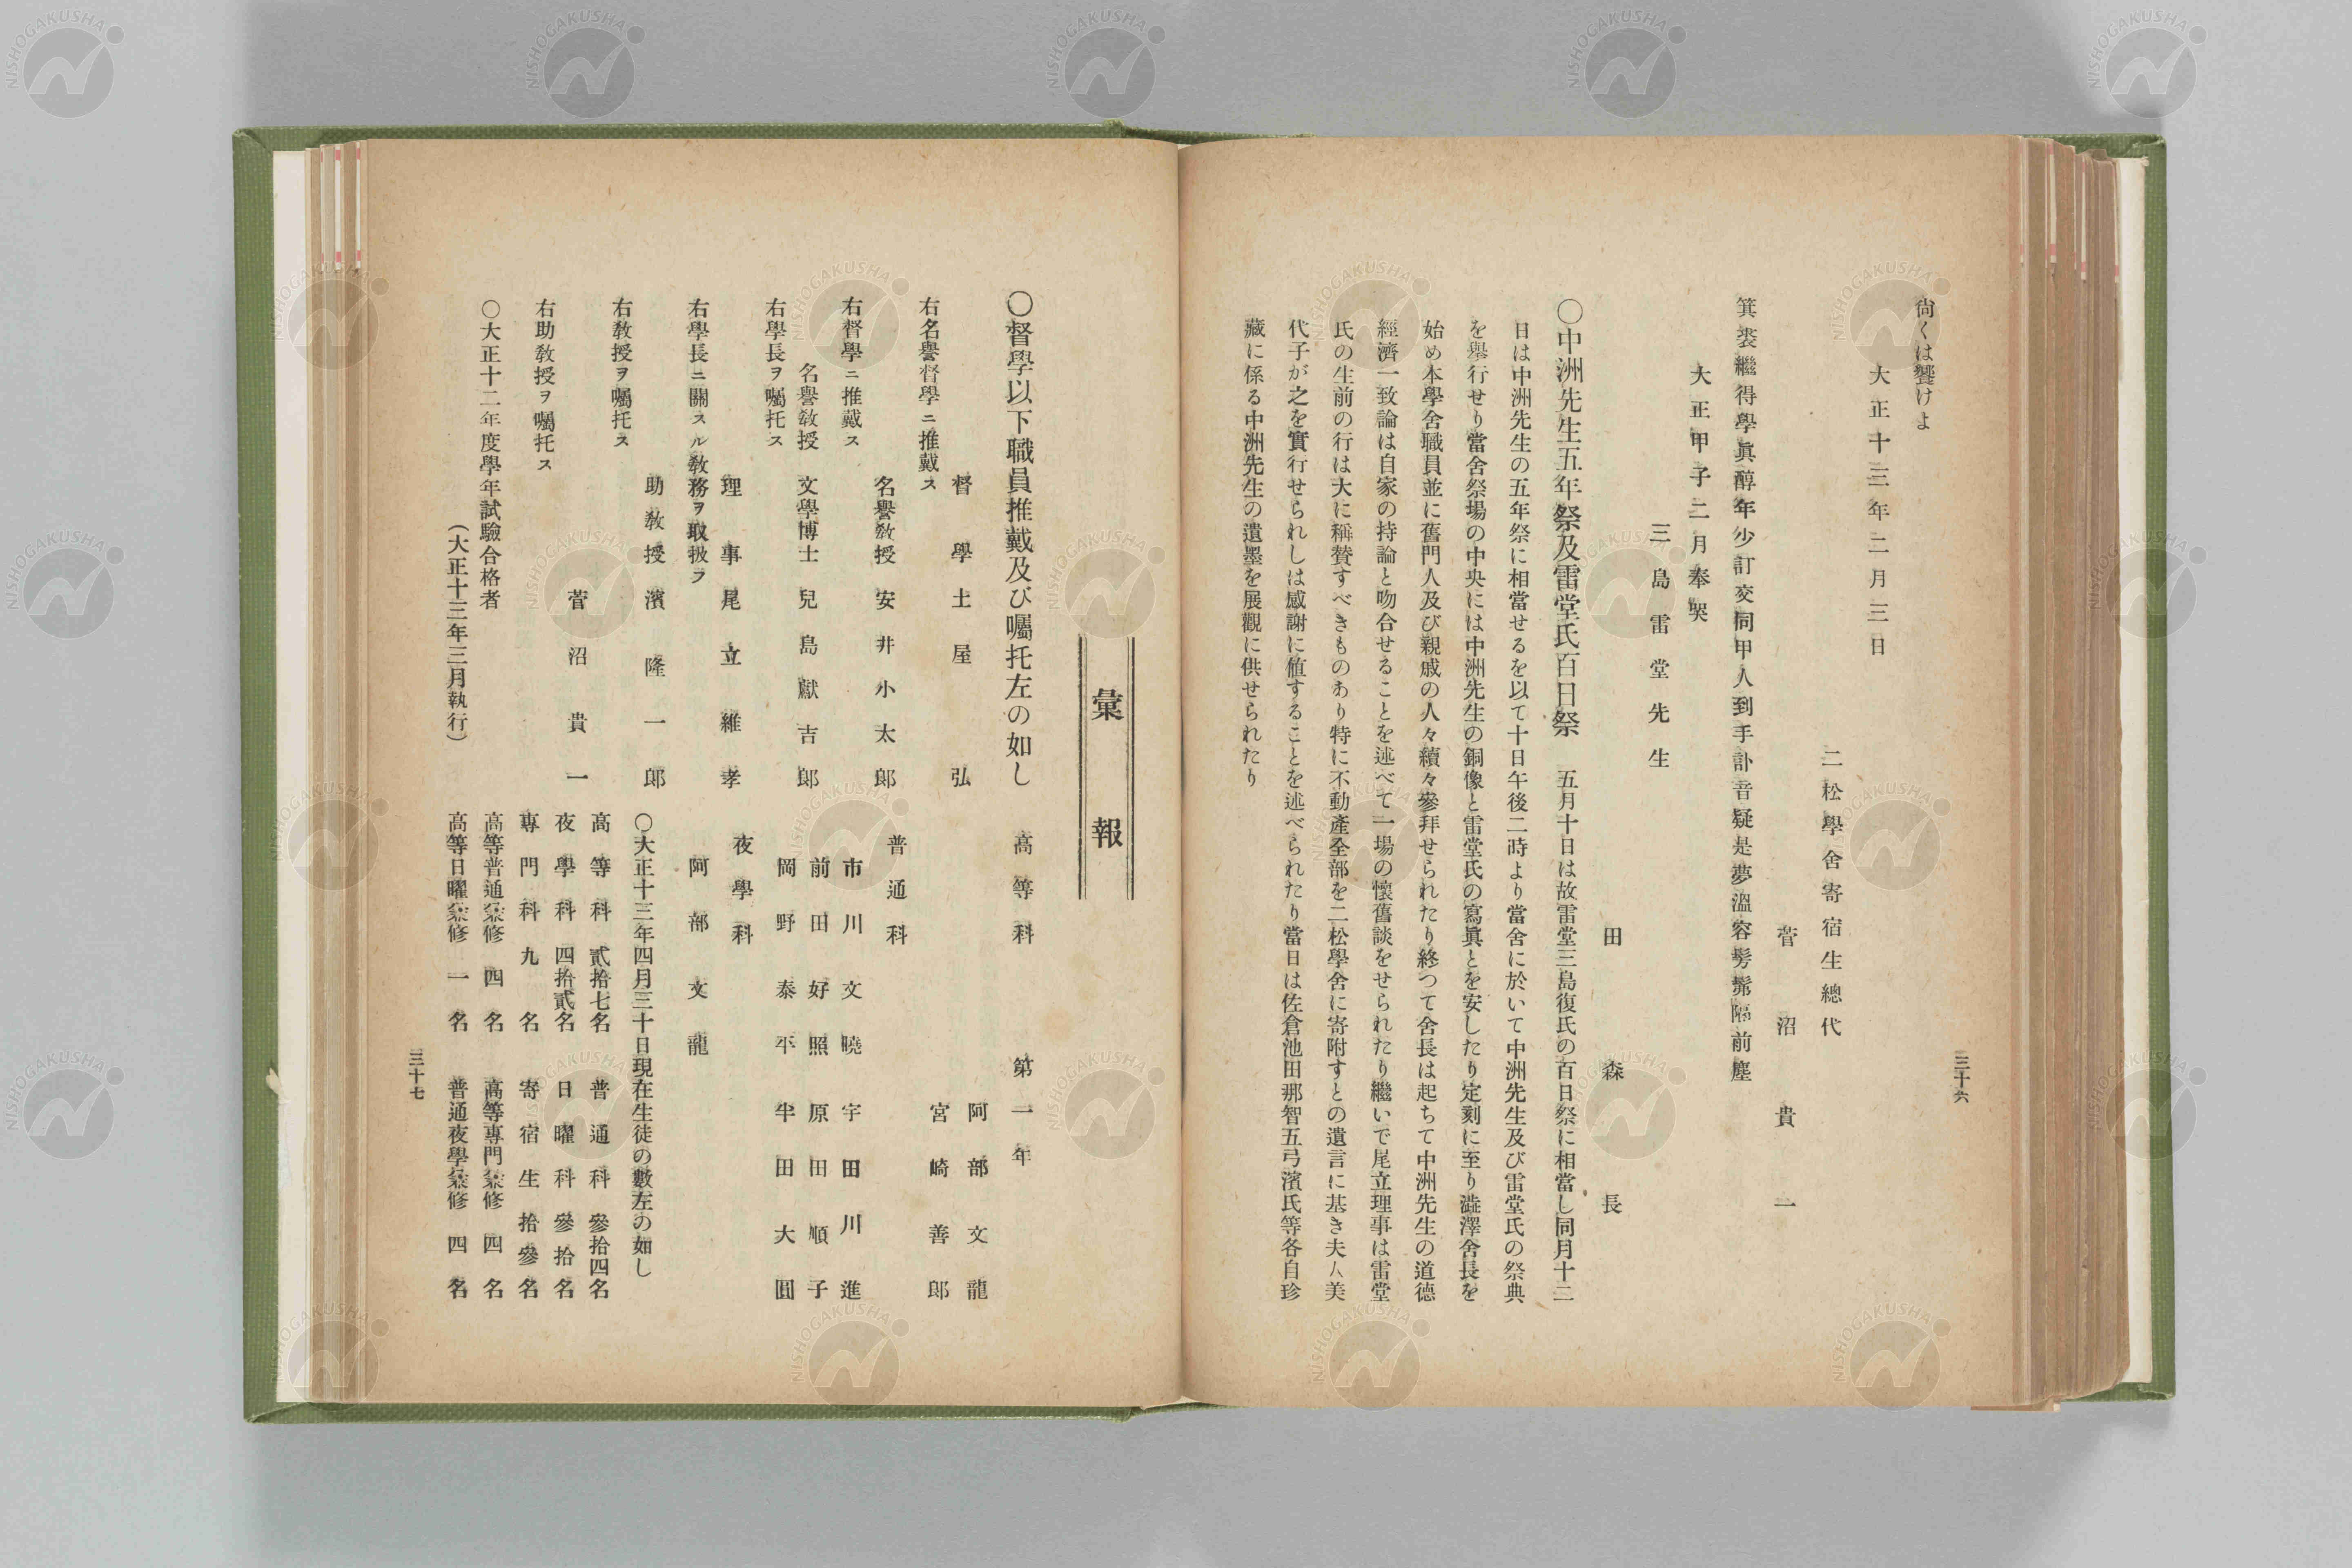 三十六
尙くは饗けよ
大正十三年二月三日
二松學舍寄宿生總代
菅沼貴一
箕裘繼得學眞醇年少訂交同甲人到手訃音疑是夢溫容髣髴隔前塵
大正甲子二月奉哭
三島雷堂先生
田森長
〇中洲先生五年祭及雷堂氏百日祭 五月十日は故雷堂三島復氏の百日祭に相當し同月十二
日は中洲先生の五年祭に相當せるを以て十日午後二時より當舍に於いて中洲先生及び雷堂氏の祭典
を擧行せり當舍祭場の中央には中洲先生の銅像と雷堂氏の寫眞とを安したり定刻に至り澁澤舍長を
始め本學舍職員並に舊門人及び親戚の人々續々參拜せられたり終つて舍長は起ちて中洲先生の道德
經濟一致論は自家の持論と吻合せることを述べて一場の懷舊談をせられたり繼いで尾立理事は雷堂
氏の生前の行は大に稱賛すべきものあり特に不動產全部を二松學舍に寄附すとの遺言に基き夫人美
代子が之を實行せられしは感謝に値することを述べられたり當日は佐倉池田那智五弓濱氏等各自珍
藏に係る中洲先生の遺墨を展觀に供せられたり
彙報
〇督學以下職員推戴及び囑托左の如し
督學 土屋弘
右名譽督學ニ推戴ス
名譽敎授 安井小太郎
右督學ニ推戴ス
名譽敎授 文學博士 兒島獻吉郎
右學長ヲ囑托ス
理事 尾立維孝
右學長ニ關スル敎務ヲ取扱フ
助敎授 濱隆一郎
右敎授ヲ囑托ス
菅沼貴一
右助敎授ヲ囑托ス
〇大正十二年度學年試驗合格者
(大正十三年三月執行)
高等科 第一年
阿部文龍
宮崎善郎
普通科
市川文曉 宇田川進
前田好照 原田順子
岡野泰平 半田大圓
夜學科
阿部文龍
〇大正十三年四月三十日現在生徒の數左の如し
高等科 貳拾七名 普通科 參拾四名
夜學科 四拾貳名 日曜科 參拾名
專門科 九名 寄宿生 拾參名
高等普通兼修 四名 高等專門兼修 四名
高等日曜兼修 一名 普通夜學兼修 四名
三十七